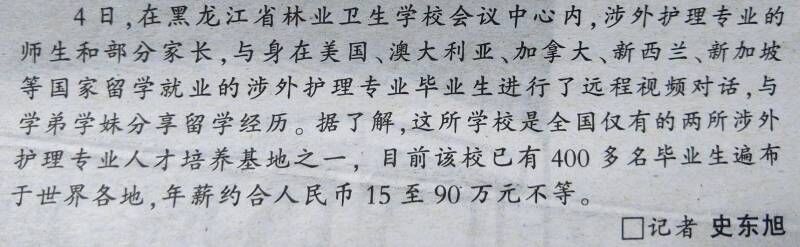 4日,在黑龙江省林业卫生学校会议中心内,涉外护理专业的
师生和部分家长,与身在美国、澳大利亚、加拿大、新西兰、新加坡
等国家留学就业的涉外护理专业毕业生进行了远程视频对话,与
学弟学妹分享留学经历。据了解,这所学校是全国仅有的两所涉外
护理专业人才培养基地之一，目前该校已有400多名毕业生遍布
于世界各地,年薪约合人民币15至90万元不等。
□记者 史东旭